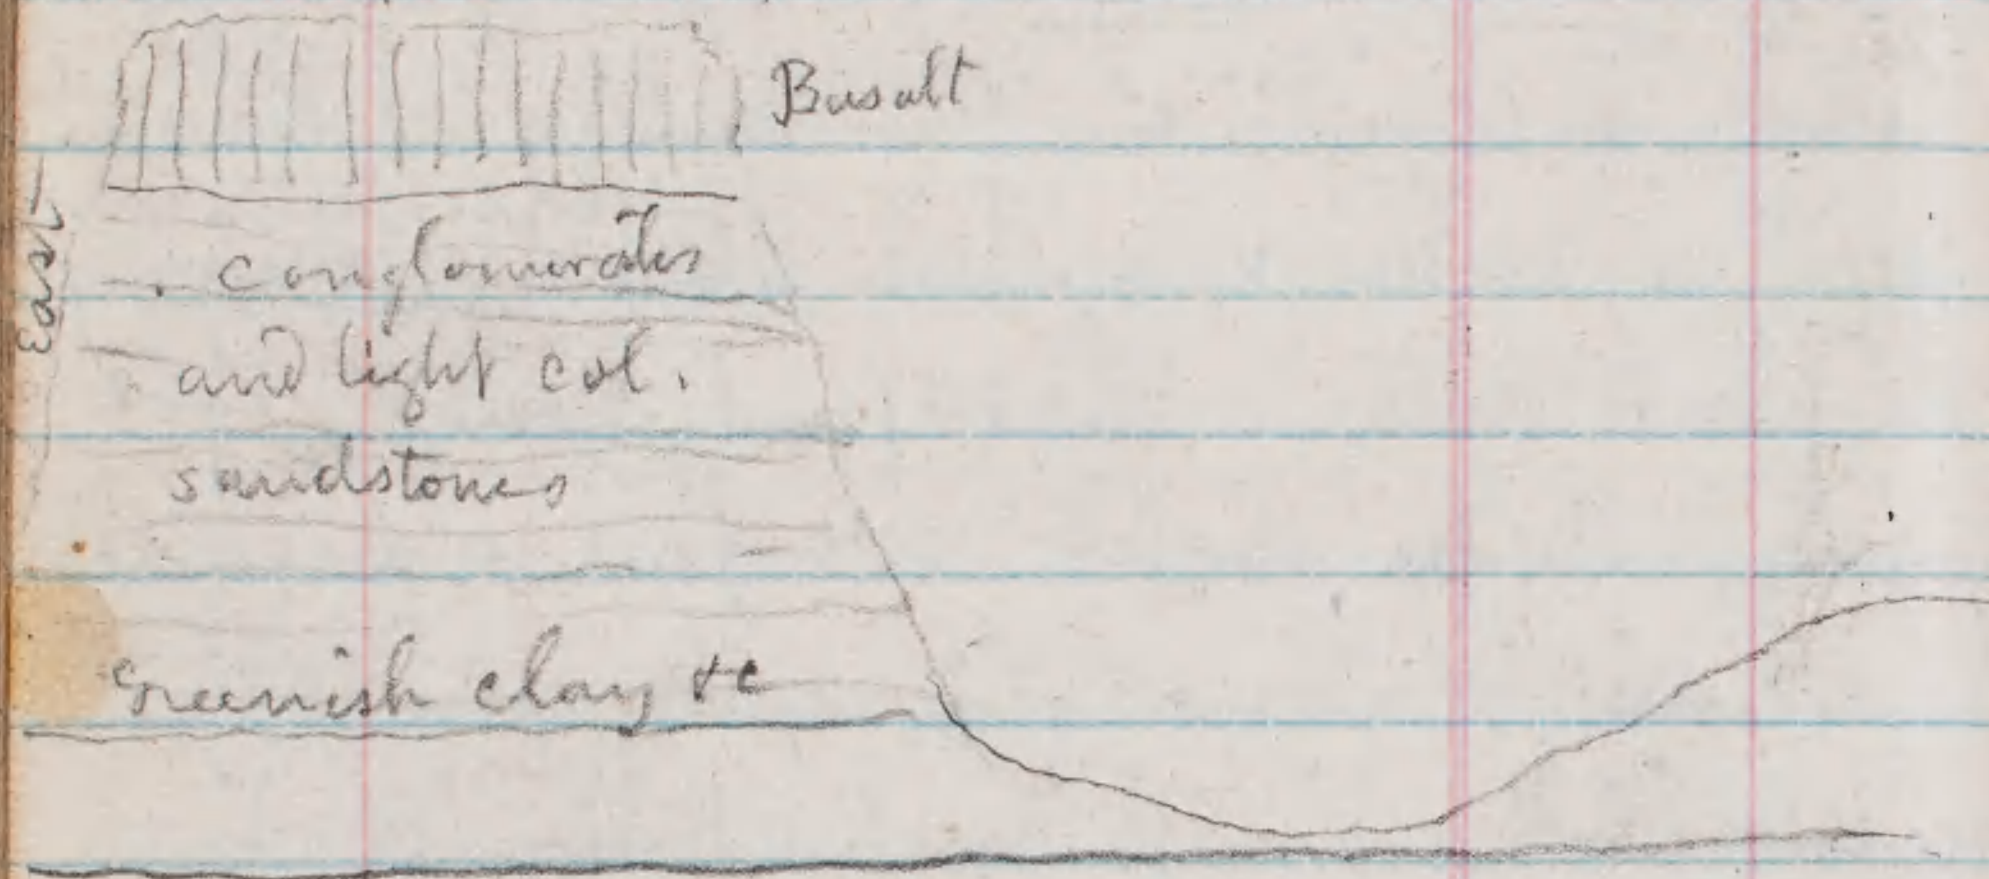 Basalt
East
conglomerates
and light col.
sandstones
Greenish clay &c